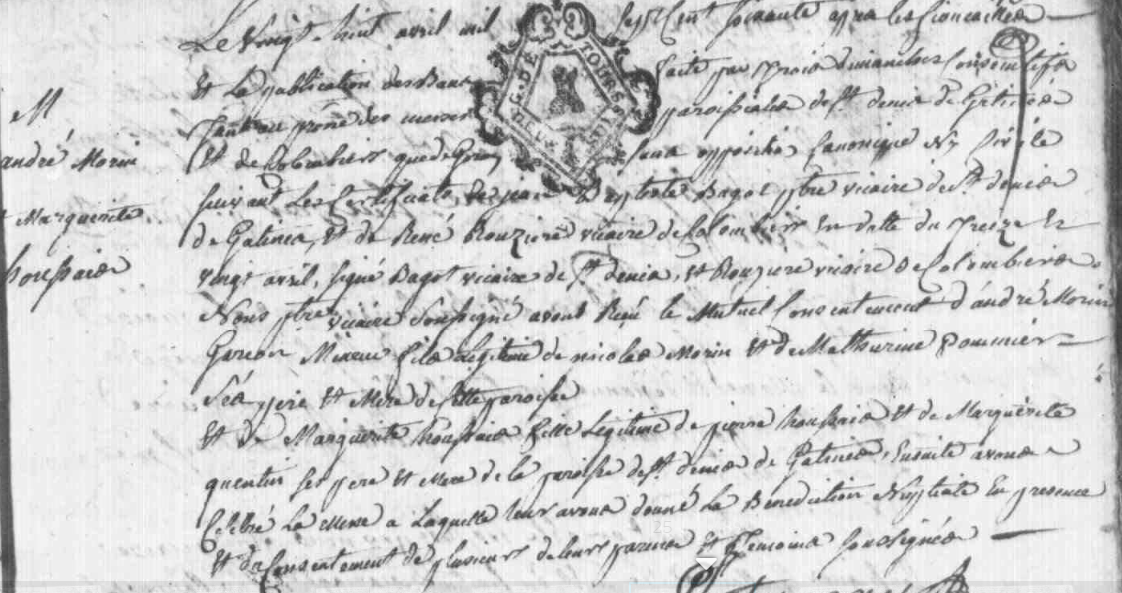 Le vingt huit avril mil sept Cent soixante apres les fiancailles
Et la publication des Bans faite par trois dimanches Consecutifs
M
andré Morin
t Marguerite
houssaie
G. DE TOURS
DEUX
au prone des messes paroissiales de St denis de Gatines
Et de Colombiers sans opposition Canonique Ny Civile
suivant Les Certificats, de jean Baptiste Bagot ptre vicaire de St denis
de Gatines, Et de René Rouziere vicaire de Colombiers En datte du treize Et
vingt avril, signé Bagot vicaire de St denis, et Rouziere vicaire de Colombieres
Nous ptre vicaire Soussigné avons Reçu le Mutuel Consentement d'andré Morin
Garcon Mineur fils Légitime de nicolas Morin Et de Mathurine pommier
Sés pere Et Mere de Cette paroisse
Et de Marguerite houssaie fille Légitime de pierre houssaie Et de Marguérite
quentin ses pere Et Mere de la paroisse de St denis de Gatines, Ensuite avons
Celebré La Messe a Laquelle leur avons donné La Bénédiction Nuptiale En presence
Et du Consentement de plusieurs de leurs parens et temoins Soussignés
25